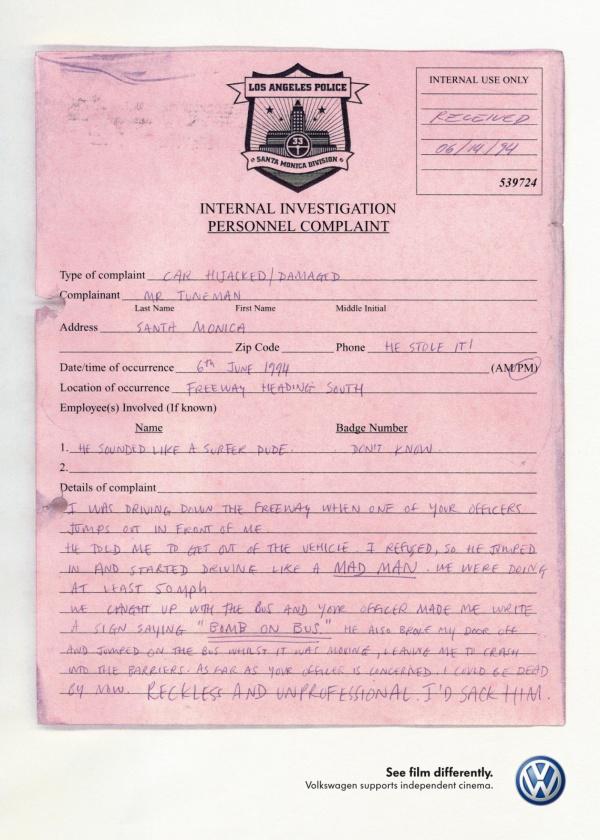 LOS ANGELES POLICE
33
SANTA MONICA DIVISION
INTERNAL USE ONLY
RECEIVED
06/14/94
539724
INTERNAL INVESTIGATION
PERSONNEL COMPLAINT
Type of complaint CAR HIJACKED/DAMAGED
Complainant MR TUNEMAN
Last Name First Name Middle Initial
Address SANTA MONICA
Zip Code Phone HE STOLE IT!
Date/time of occurrence 6th JUNE 1994 (AM/PM)
Location of occurrence FREEWAY HEADING SOUTH
Employee(s) Involved (If known)
Name Badge Number
1. HE SOUNDED LIKE A SURFER DUDE. DON'T KNOW.
2.
Details of complaint
I WAS DRIVING DOWN THE FREEWAY WHEN ONE OF YOUR OFFICERS
JUMPS OUT IN FRONT OF ME.
HE TOLD ME TO GET OUT OF THE VEHICLE. I REFUSED, SO HE JUMPED
IN AND STARTED DRIVING LIKE A MAD MAN. WE WERE DOING
AT LEAST 50MPH.
WE CAUGHT UP WITH THE BUS AND YOUR OFFICER MADE ME WRITE
A SIGN SAYING "BOMB ON BUS." HE ALSO BROKE MY DOOR OFF
AND JUMPED ON THE BUS WHILST IT WAS MOVING, LEAVING ME TO CRASH
INTO THE BARRIERS. AS FAR AS YOUR OFFICER IS CONCERNED, I COULD BE DEAD
BY NOW. RECKLESS AND UNPROFESSIONAL. I'D SACK HIM.
See film differently.
Volkswagen supports independent cinema.